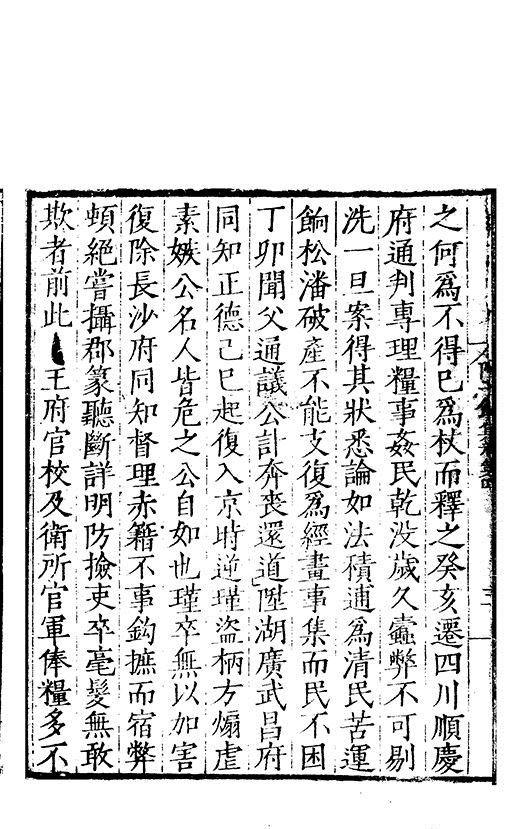 之何爲不得已爲杖而釋之癸亥遷四川順慶
府通判專理糧事姦民乾没歲久蠹弊不可剔
洗一旦案得其狀悉論如法積逋爲清民苦運
餉松潘破產不能支復爲經畫事集而民不困
丁卯聞父通議公訃奔喪還道陞湖廣武昌府
同知正德己巳起復入京時逆瑾盜柄方煽虐
素嫉公名人皆危之公自如也瑾卒無以加害
復除長沙府同知督理赤籍不事鈎摭而宿弊
頓絕嘗攝郡篆聽斷詳明防撿吏卒毫髮無敢
欺者前此王府官校及衛所官軍俸糧多不